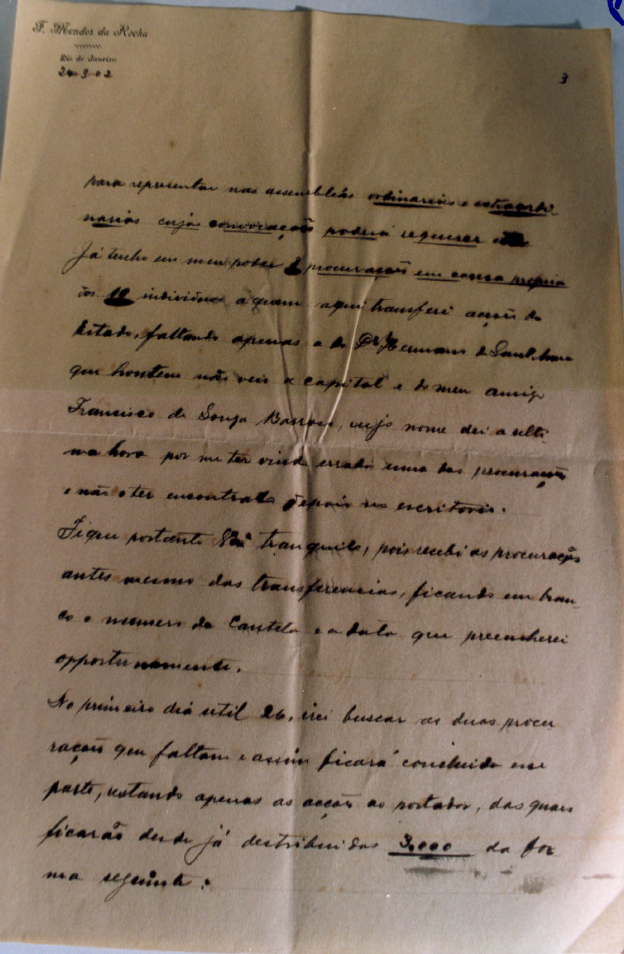 F. Mendes da Rocha
Rio de Janeiro
24-3-02
3
para representar nas assembléas ordinarias e extraordi
narias cujas convocação poderá requerer
Já tenho em meu poder procuração em causa propria
dos 10 individuos a quem aqui transferi acções do
Estado, faltando apenas a do Dr Hermano de Sant'Anna
que hontem não veio a capital e do meu amigo
Francisco de Souza Barros, cujo nome dei a ulti
ma hora por me ter vindo errada uma das procurações
e não o ter encontrado depois no escritorio.
Fique portanto tranquilo, pois recebi as procurações
antes mesmo das transferencias, ficando em bran
co o numero da Cautela e a data que preencherei
opportunamente.
No primeiro dia util 26, irei buscar as duas procu
rações que faltam e assim ficará concluida essa
parte, restando apenas as acções ao portador, das quaes
ficarão desde já destribuidas 3,000 da for
ma seguinte: